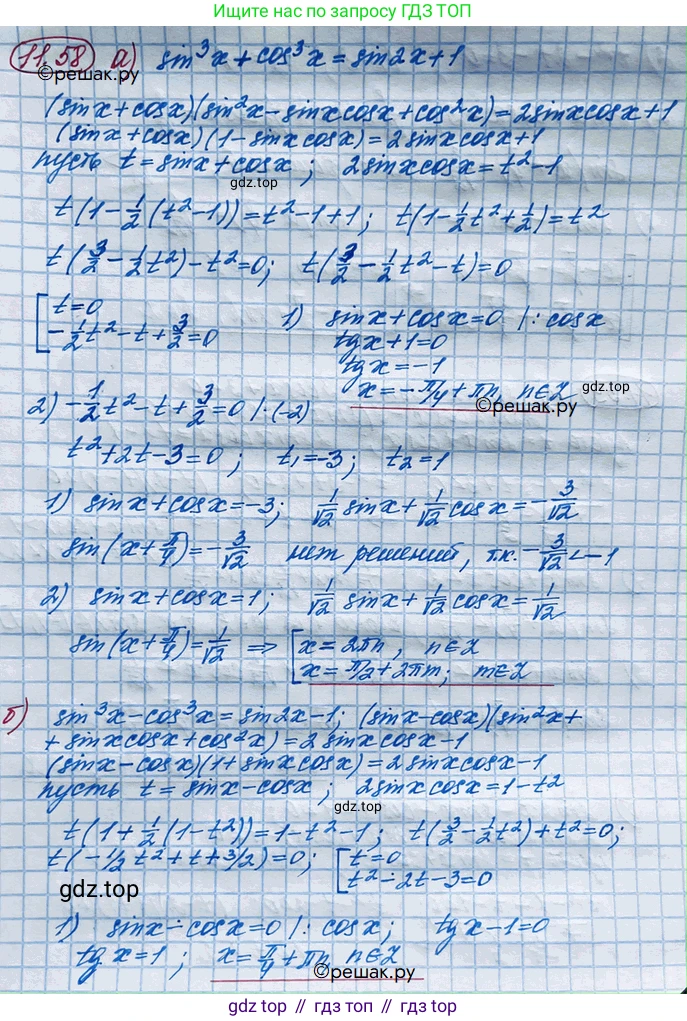 Ищите нас по запросу ГДЗ ТОП
11.58 а) sin³x + cos³x = sin2x + 1
©reшак.ру
©reшак.ру
(sinx + cosx)(sin²x - sinxcosx + cos²x) = 2sinxcosx + 1
(sinx + cosx)(1 - sinxcosx) = 2sinxcosx + 1
пусть t = sinx + cosx ; 2sinxcosx = t² - 1
gdz.top
t(1 - 1/2(t² - 1)) = t² - 1 + 1 ; t(1 - 1/2t² + 1/2) = t²
t(3/2 - 1/2t²) - t² = 0; t(3/2 - 1/2t² - t) = 0
[ t = 0
-1/2t² - t + 3/2 = 0
1) sinx + cosx = 0 |: cosx
tgx + 1 = 0
tgx = -1
x = -π/4 + πn, n∈Z
gdz.top
©reшак.ру
2) -1/2t² - t + 3/2 = 0 |·(-2)
t² + 2t - 3 = 0 ; t₁ = -3 ; t₂ = 1
1) sinx + cosx = -3; 1/√2 sinx + 1/√2 cosx = -3/√2
sin(x + π/4) = -3/√2 нет решений, т.к. -3/√2 < -1
2) sinx + cosx = 1; 1/√2 sinx + 1/√2 cosx = 1/√2
sin(x + π/4) = 1/√2 ⇒ [ x = 2πn , n∈Z
x = π/2 + 2πm; m∈Z
б) sin³x - cos³x = sin2x - 1; (sinx - cosx)(sin²x +
+ sinxcosx + cos²x) = 2 sinxcosx - 1
(sinx - cosx)(1 + sinxcosx) = 2sinxcosx - 1
пусть t = sinx - cosx ; 2sinxcosx = 1 - t²
gdz.top
t(1 + 1/2(1 - t²)) = 1 - t² - 1 ; t(3/2 - 1/2t²) + t² = 0;
t(-1/2 t² + t + 3/2) = 0; [ t = 0
t² - 2t - 3 = 0
gdz.top
1) sinx - cosx = 0 |: cosx ; tgx - 1 = 0
tgx = 1 ; x = π/4 + πn, n∈Z
©reшак.ру
gdz.top // гдз.топ // gdz.top